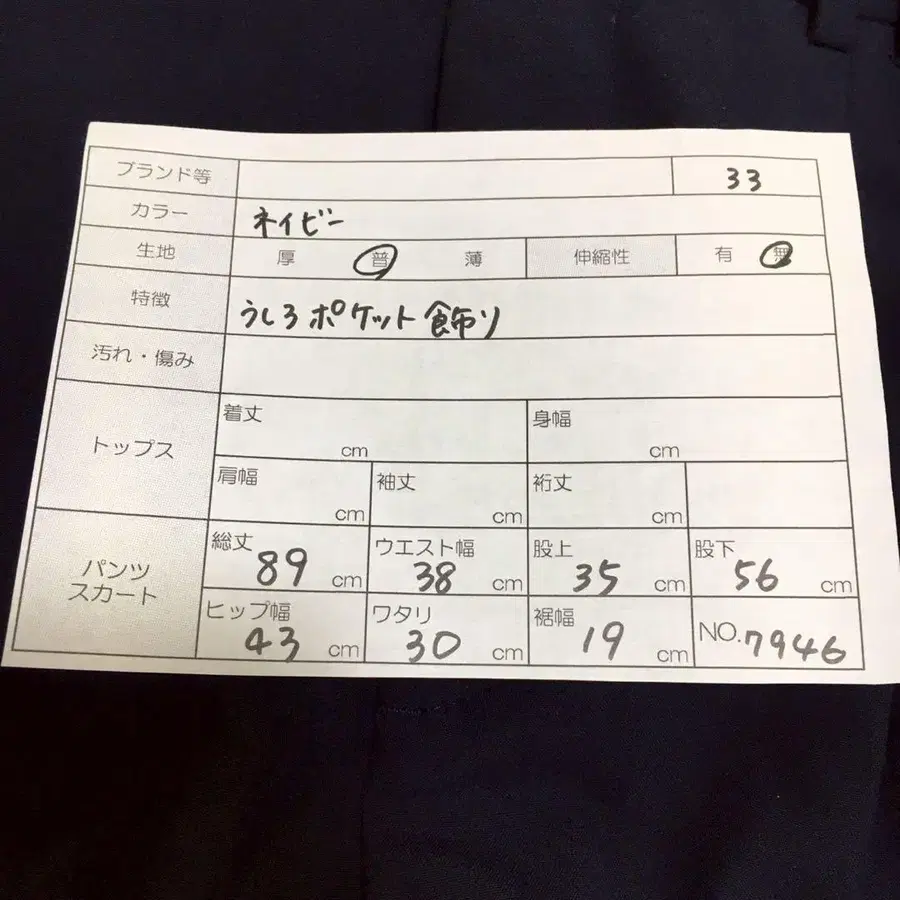 ブランド等 33
カラー ネイビー
生地 厚 普 薄 伸縮性 有 無
特徴 うしろポケット飾り
汚れ・傷み
トップス
着丈 cm 身幅 cm
肩幅 cm 袖丈 cm 裄丈 cm
パンツ
スカート
総丈 89 cm ウエスト幅 38 cm 股上 35 cm 股下 56 cm
ヒップ幅 43 cm ワタリ 30 cm 裾幅 19 cm NO.7946